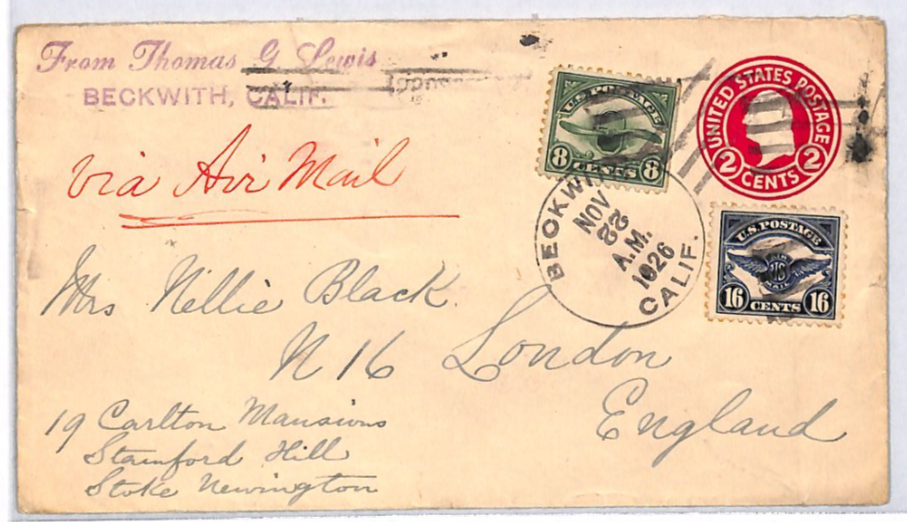 From Thomas G Lewis
BECKWITH, CALIF.
via Air Mail
U.S. POSTAGE
8 CENTS 8
UNITED STATES POSTAGE
2 CENTS 2
BECKWITH
NOV
22
A.M.
1926
CALIF.
U.S. POSTAGE
AIR MAIL
16 CENTS 16
Mrs Nellie Black
N 16 London
England
19 Carlton Mansions
Stamford Hill
Stoke Newington